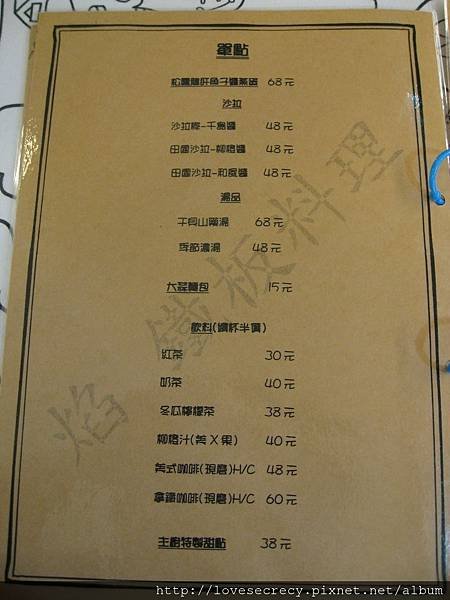 單點
松露鵝肝魚子醬蒸蛋 68元
沙拉
沙拉棒-千島醬 48元
田園沙拉-柳橙醬 48元
田園沙拉-和風醬 48元
湯品
干貝山藥湯 68元
季節濃湯 48元
大蒜麵包 15元
飲料(續杯半價)
紅茶 30元
奶茶 40元
冬瓜檸檬茶 38元
柳橙汁(美X果) 40元
美式咖啡(現磨)H/C 48元
拿鐵咖啡(現磨)H/C 60元
主廚特製甜點 38元
焰 鐵板料理
http://lovesecrecy.pixnet.net/album